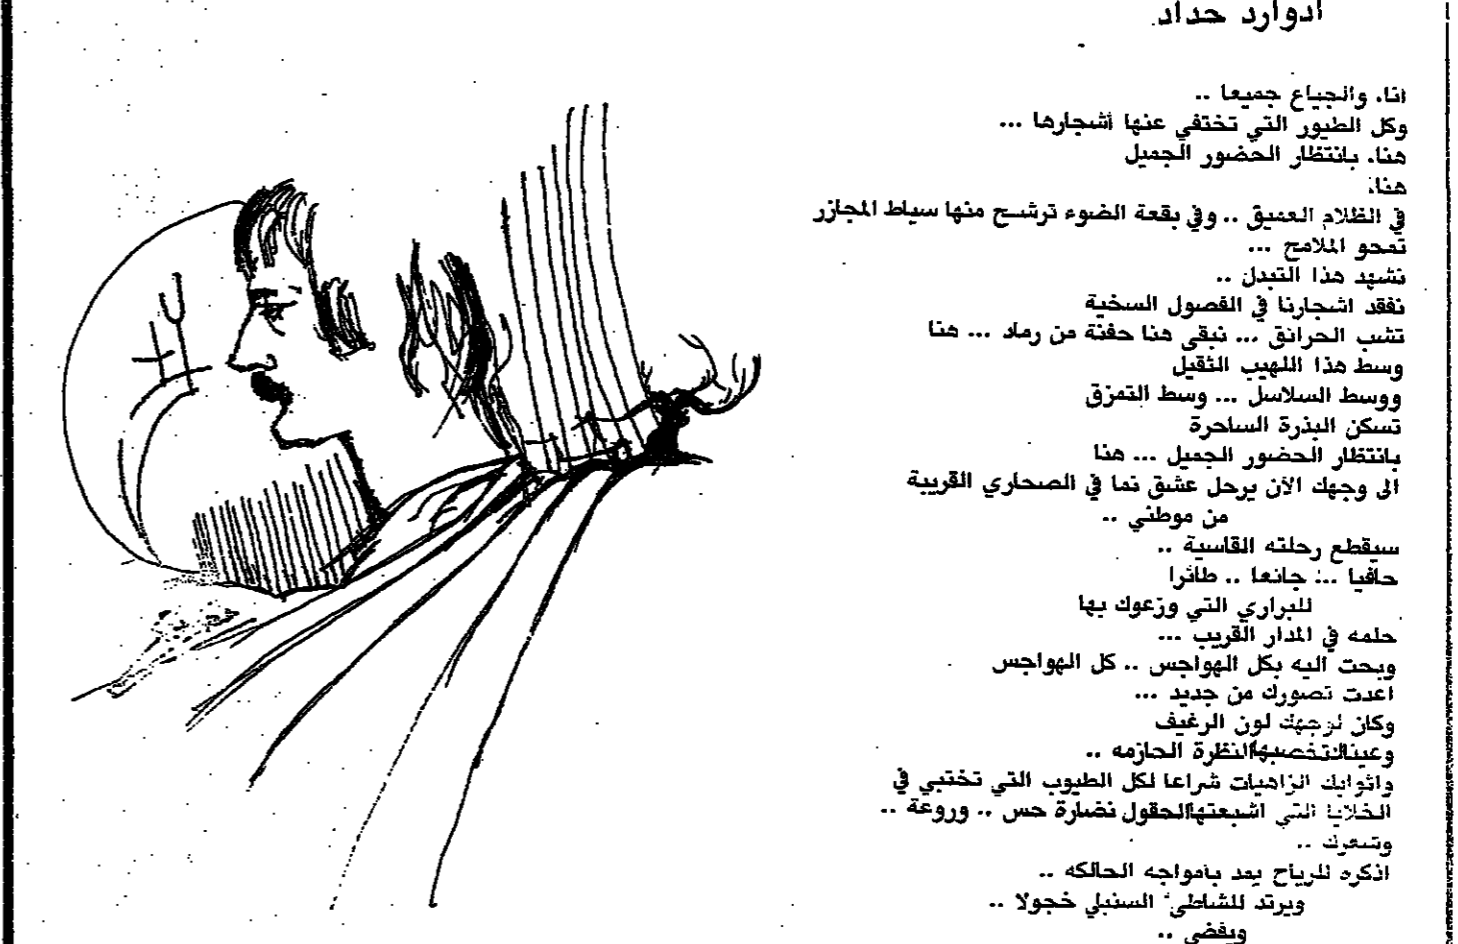 ادوارد حداد
انا، والجياع جميعا ..
وكل الطيور التي تختفي عنها أشجارها ...
هنا، بانتظار الحضور الجميل
هنا،
في الظلام العميق .. وفي بقعة الضوء ترشح منها سياط المجازر
تمحو الملامح ...
نشهد هذا التبدل ..
نفقد اشجارنا في الفصول السخية
تشب الحرائق ... نبقى هنا حفنة من رماد ... هنا
وسط هذا اللهيب الثقيل
ووسط السلاسل ... وسط التمزق
تسكن البذرة الساحرة
بانتظار الحضور الجميل ... هنا
الى وجهك الآن يرحل عشق نما في الصحاري القريبة
من موطني ..
سيقطع رحلته القاسية ..
حافيا .. جائعا .. طائرا
للبراري التي وزعوك بها
حلمه في المدار القريب ...
وبحت اليه بكل الهواجس .. كل الهواجس
اعدت تصورك من جديد ...
وكان لوجهك لون الرغيف
وعيناك تخصبها النظرة الحازمه ..
واثوابك الزاهيات شراعا لكل الطيوب التي تختبي في
الخلايا التي اشبعتها الحقول نضارة حس .. وروعة ..
وشعرك ..
اذكره للرياح يمد بامواجه الحالكه ..
ويرتد للشاطئ السنبلي خجولا ..
ويفضي ..